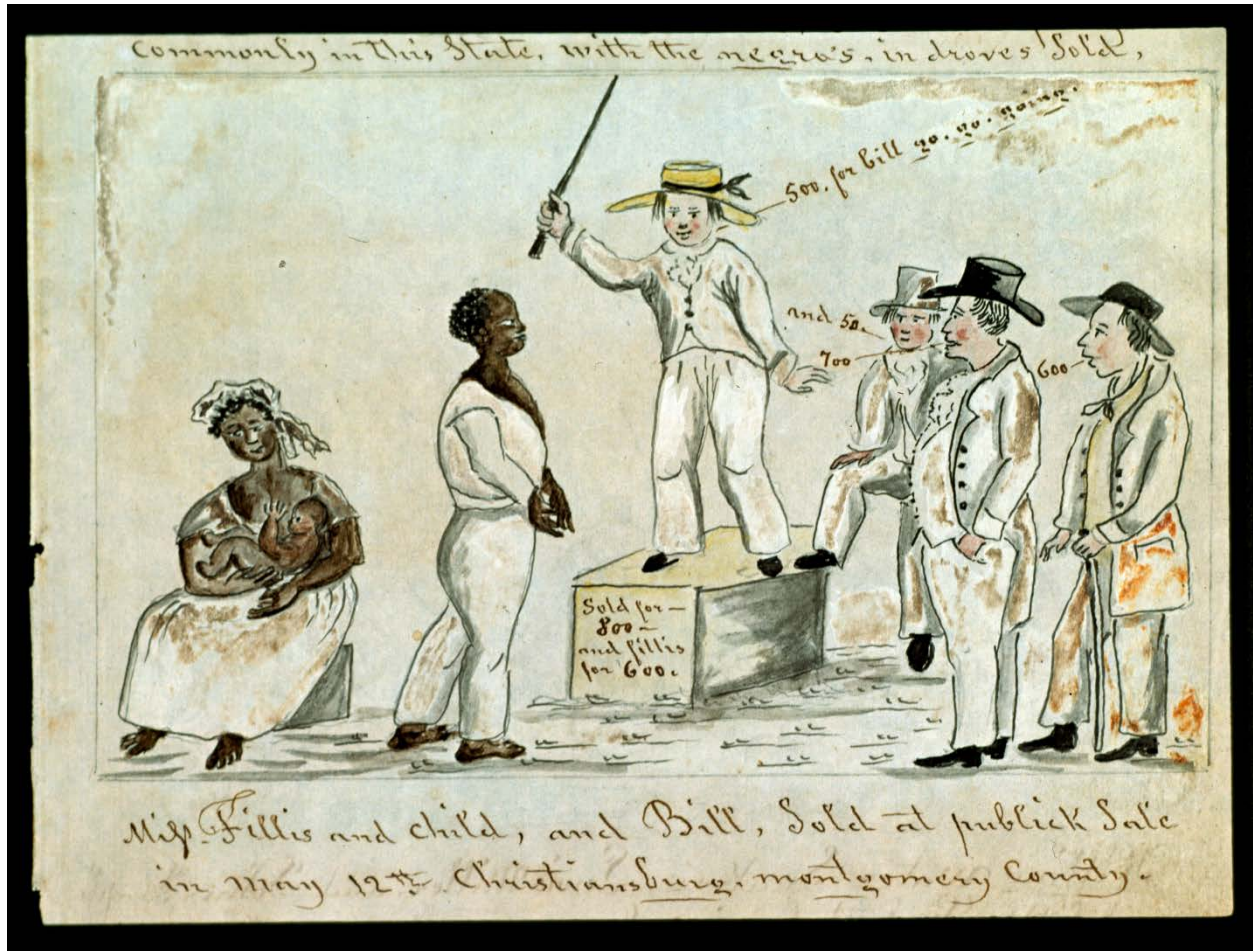 Commonly in this State, with the negro's, in droves Sold,
500. for bill go. go. going.
and 50.
700
600
Sold for —
800 —
and fillis
for 600.
Miſs. Fillis and child, and Bill, Sold at publick Sale
in may 12th. Christiansburg, montgomery County.